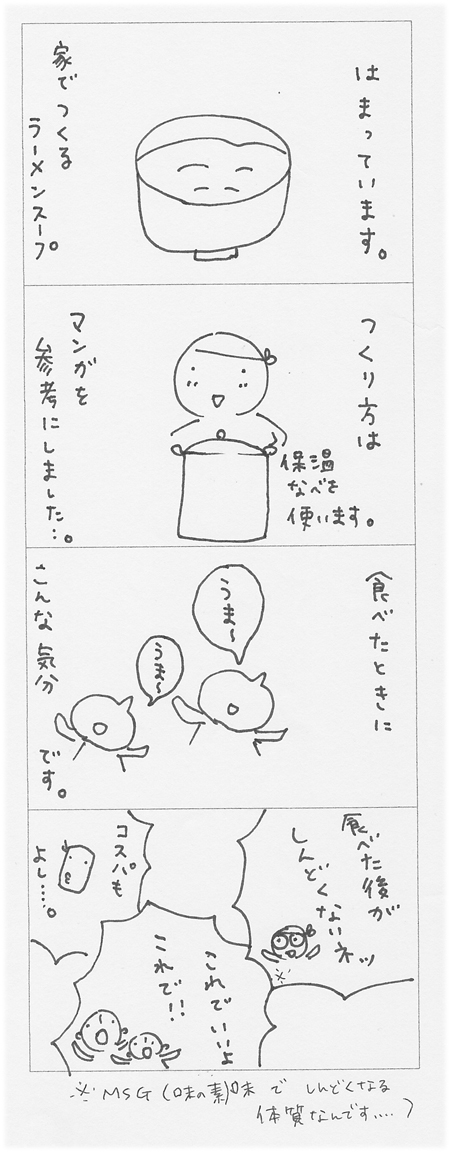 はまっています。
家でつくる
ラーメンスープ。
つくり方は
保温
なべを
使います。
マンガを
参考にしました…。
食べたときに
うま〜
うま〜
こんな気分
です。
食べた後が
しんどくないネッ
コスパも
よし…。
これでいいよ
これで!!
※MSG(味の素)味でしんどくなる
体質なんです….